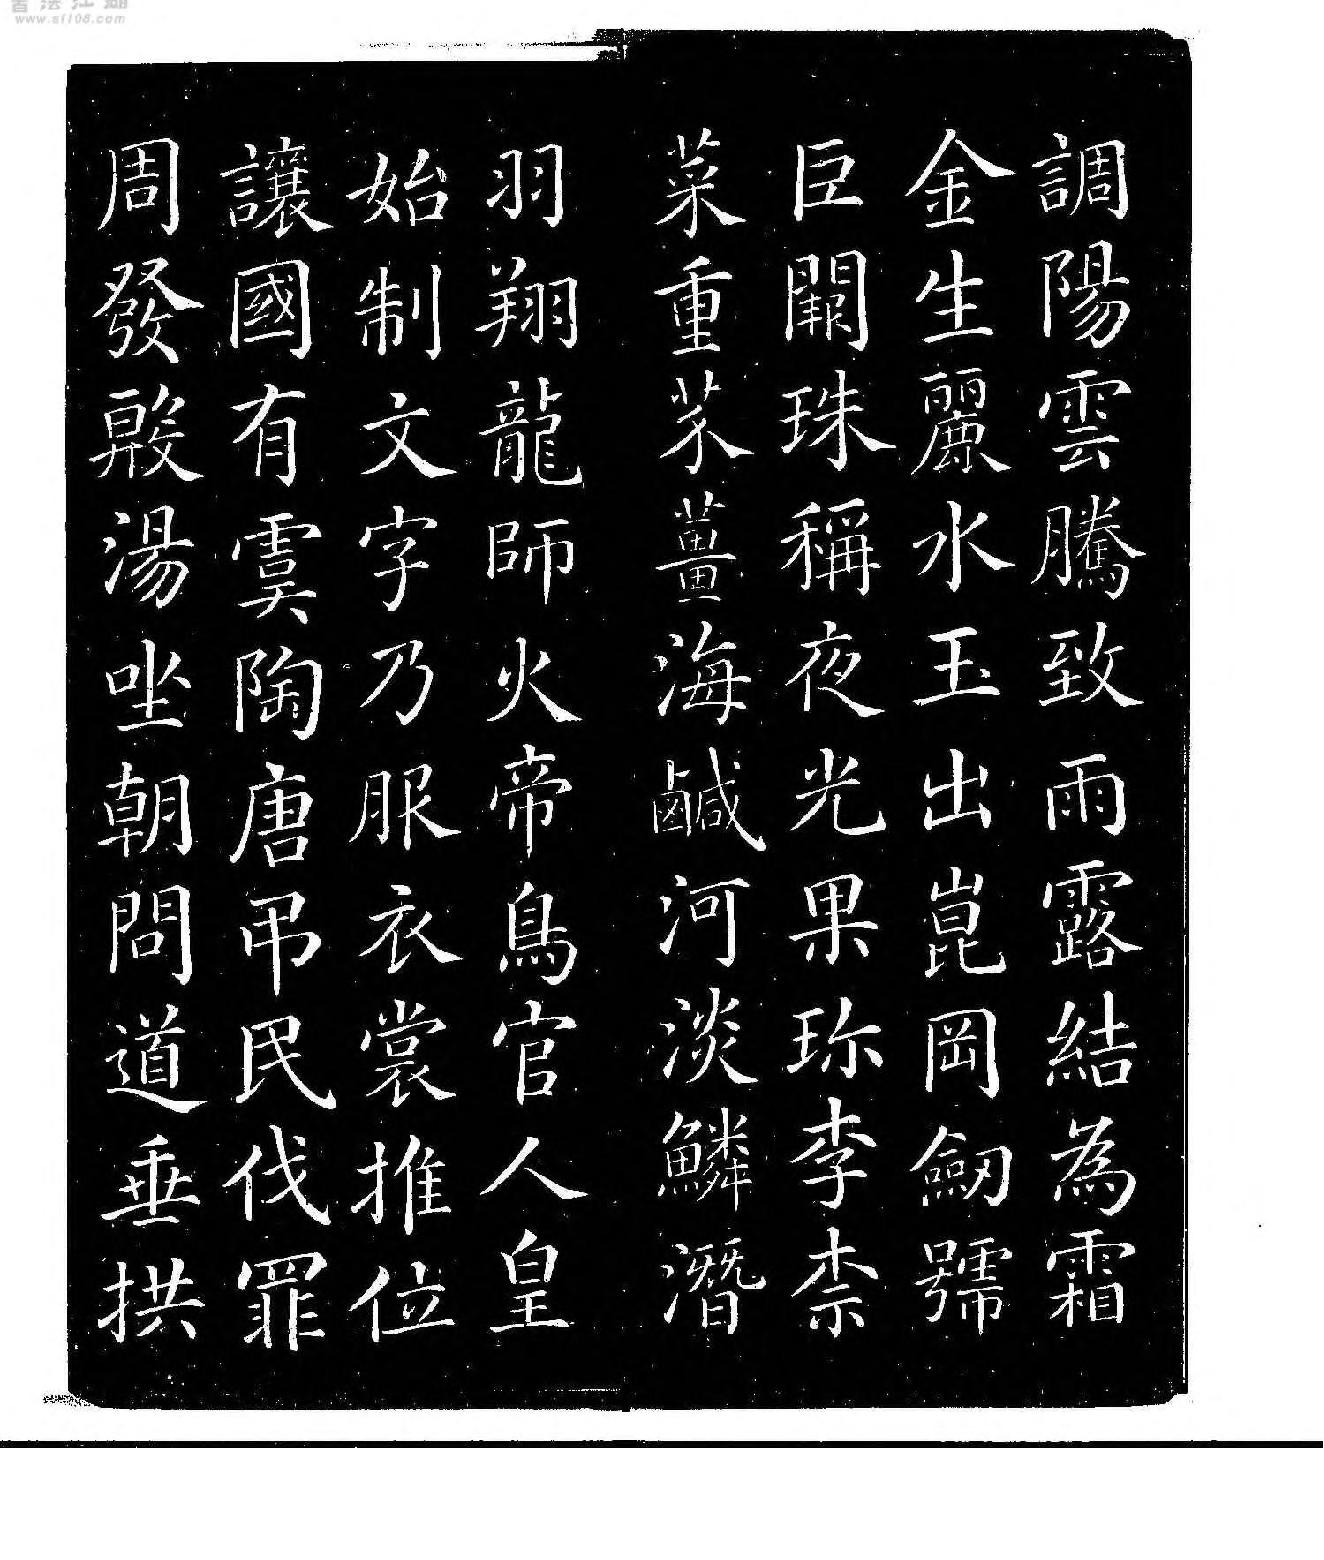 書法江湖
www.sf108.com
調陽雲騰致雨露結為霜
金生麗水玉出崑岡劒號
巨闕珠稱夜光果珎李柰
菜重芥薑海鹹河淡鱗潛
羽翔龍師火帝鳥官人皇
始制文字乃服衣裳推位
讓國有虞陶唐吊民伐罪
周發殷湯坐朝問道垂拱